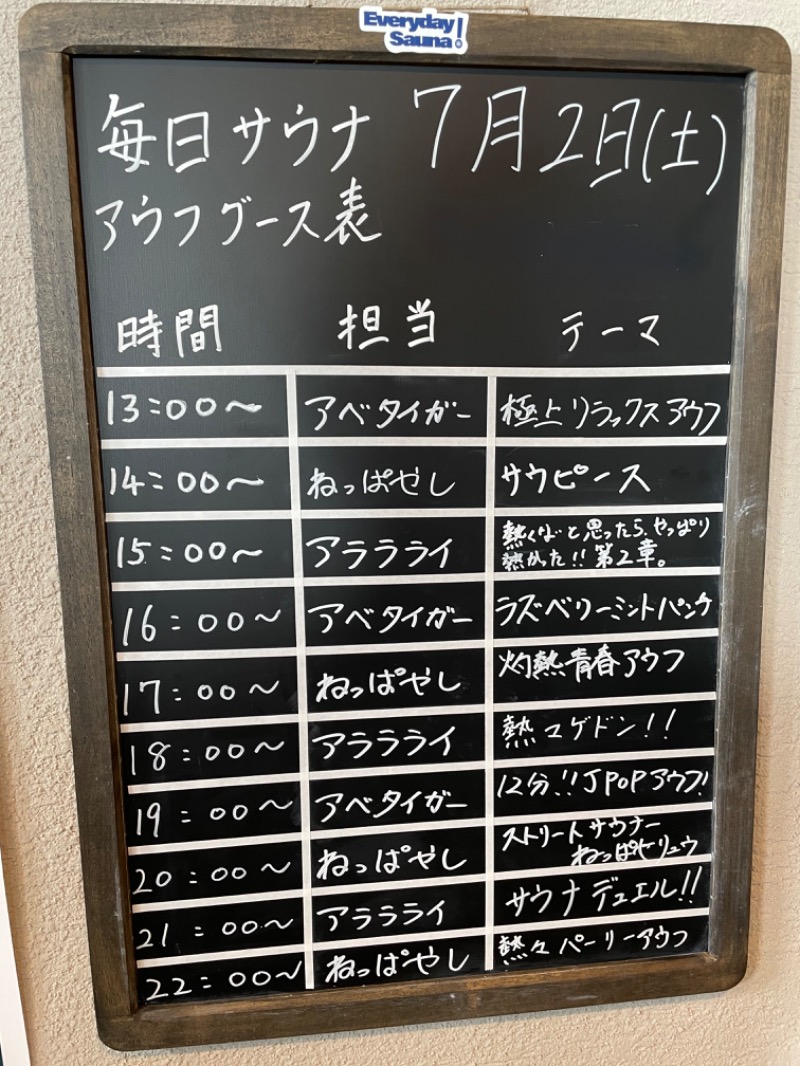 Everyday
Sauna!
毎日サウナ 7月2日(土)
アウフグース表
時間 担当 テーマ
13:00〜 アベタイガー 極上リラックスアウフ
14:00〜 ねっぱやし サウピース
15:00〜 アラララライ 熱くないと思ったら、やっぱり
熱かった!!第2章。
16:00〜 アベタイガー ラズベリーミントパンチ
17:00〜 ねっぱやし 灼熱青春アウフ
18:00〜 アララライ 熱マゲドン!!
19:00〜 アベタイガー 12分!!JPOPアウフ!
20:00〜 ねっぱやし ストリートサウナー
ねっぱセリュウ
21:00〜 アララライ サウナデュエル!!
22:00〜 ねっぱやし 熱々パーリーアウフ